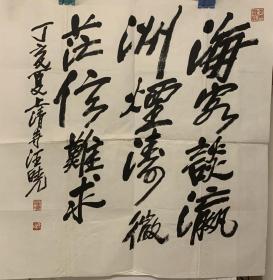 海客談瀛
洲煙濤微
茫信難求
丁亥夏